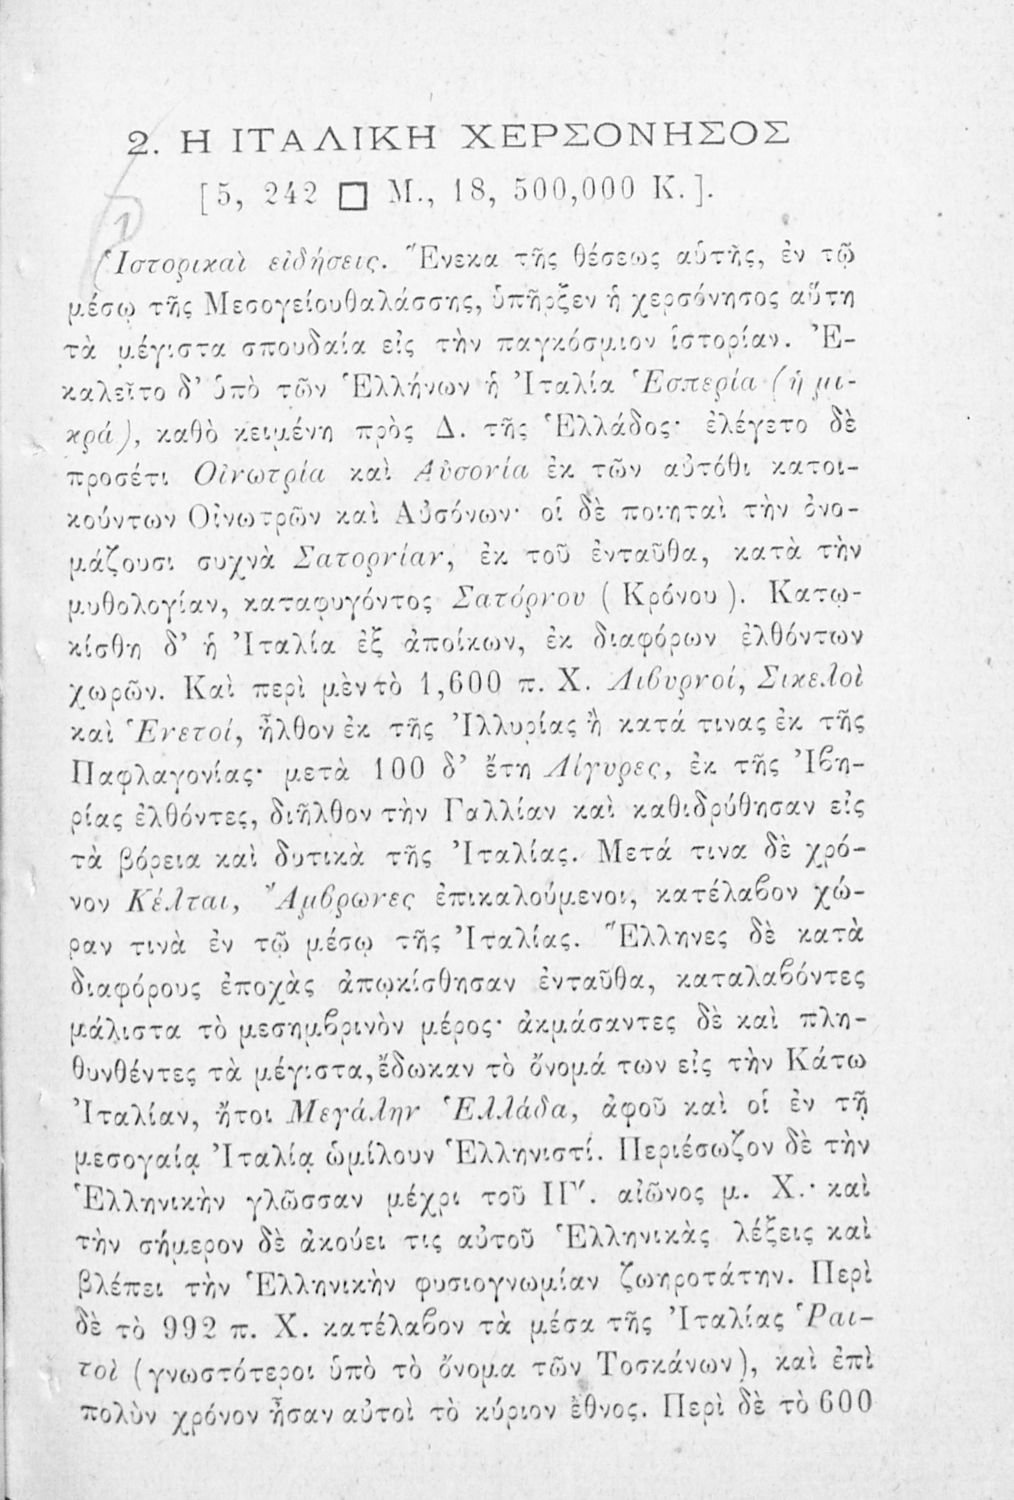 2. Η ΙΤΑΛΙΚΗ ΧΕΡΣΟΝΗΣΟΣ
[5, 242 □ Μ., 18, 500,000 Κ.].
(Ἱστορικαὶ εἰδήσεις. Ἕνεκα τῆς θέσεως αὑτῆς, ἐν τῷ
μέσῳ τῆς Μεσογείουθαλάσσης, ὑπῆρξεν ἡ χερσόνησος αὕτη
τὰ μέγιστα σπουδαία εἰς τὴν παγκόσμιον ἱστορίαν. Ἐ-
καλεῖτο δ’ ὑπὸ τῶν Ἑλλήνων ἡ Ἰταλία Ἑσπερία (ἡ μι-
κρά), καθὸ κειμένη πρὸς Δ. τῆς Ἑλλάδος· ἐλέγετο δὲ
προσέτι Οἰνωτρία καὶ Αὐσονία ἐκ τῶν αὐτόθι κατοι-
κούντων Οἰνωτρῶν καὶ Αὐσόνων· οἱ δὲ ποιηταὶ τὴν ὀνο-
μάζουσι συχνὰ Σατορνίαν, ἐκ τοῦ ἐνταῦθα, κατὰ τὴν
μυθολογίαν, καταφυγόντος Σατόρνου ( Κρόνου ). Κατῳ-
κίσθη δ’ ἡ Ἰταλία ἐξ ἀποίκων, ἐκ διαφόρων ἐλθόντων
χωρῶν. Καὶ περὶ μὲν τὸ 1,600 π. Χ. Λιβυρνοί, Σικελοὶ
καὶ Ἑνετοί, ἦλθον ἐκ τῆς Ἰλλυρίας ἢ κατά τινας ἐκ τῆς
Παφλαγονίας· μετὰ 100 δ’ ἔτη Λίγυρες, ἐκ τῆς Ἰβη-
ρίας ἐλθόντες, διῆλθον τὴν Γαλλίαν καὶ καθιδρύθησαν εἰς
τὰ βόρεια καὶ δυτικὰ τῆς Ἰταλίας. Μετά τινα δὲ χρό-
νον Κέλται, Ἄμβρωνες ἐπικαλούμενοι, κατέλαβον χώ-
ραν τινὰ ἐν τῷ μέσῳ τῆς Ἰταλίας. Ἕλληνες δὲ κατὰ
διαφόρους ἐποχὰς ἀπῳκίσθησαν ἐνταῦθα, καταλαβόντες
μάλιστα τὸ μεσημβρινὸν μέρος· ἀκμάσαντες δὲ καὶ πλη-
θυνθέντες τὰ μέγιστα, ἔδωκαν τὸ ὄνομά των εἰς τὴν Κάτω
Ἰταλίαν, ἤτοι Μεγάλην Ἑλλάδα, ἀφοῦ καὶ οἱ ἐν τῇ
μεσογαίᾳ Ἰταλίᾳ ὡμίλουν Ἑλληνιστί. Περιέσωζον δὲ τὴν
Ἑλληνικὴν γλῶσσαν μέχρι τοῦ ΙΓ΄. αἰῶνος μ. Χ.· καὶ
τὴν σήμερον δὲ ἀκούει τις αὐτοῦ Ἑλληνικὰς λέξεις καὶ
βλέπει τὴν Ἑλληνικὴν φυσιογνωμίαν ζωηροτάτην. Περὶ
δὲ τὸ 992 π. Χ. κατέλαβον τὰ μέσα τῆς Ἰταλίας Ῥαι-
τοὶ (γνωστότεροι ὑπὸ τὸ ὄνομα τῶν Τοσκάνων), καὶ ἐπὶ
πολὺν χρόνον ἦσαν αὐτοὶ τὸ κύριον ἔθνος. Περὶ δὲ τὸ 600